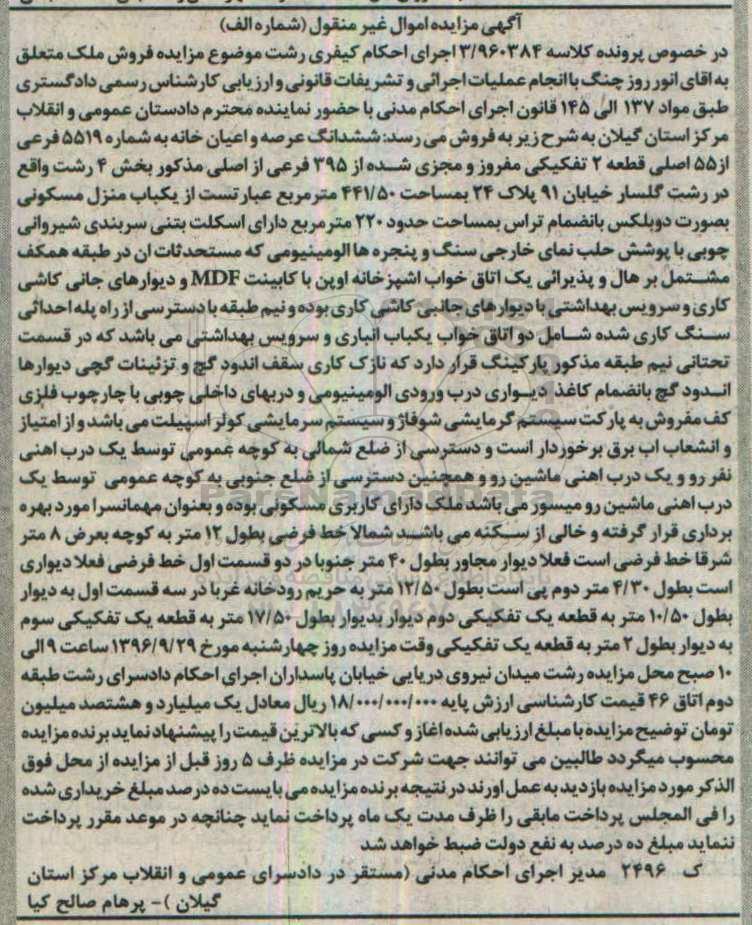 آگهی مزایده اموال غیر منقول (شماره الف)
در خصوص پرونده کلاسه ۳/۹۶۰۳۸۴ اجرای احکام کیفری رشت موضوع مزایده فروش ملک متعلق
به اقای انور روز چنگ با انجام عملیات اجرائی و تشریفات قانونی و ارزیابی کارشناس رسمی دادگستری
طبق مواد ۱۳۷ الی ۱۴۵ قانون اجرای احکام مدنی با حضور نماینده محترم دادستان عمومی و انقلاب
مرکز استان گیلان به شرح زیر به فروش می رسد: ششدانگ عرصه و اعیان خانه به شماره ۵۵۱۹ فرعی
از ۵۵ اصلی قطعه ۲ تفکیکی مفروز و مجزی شده از ۳۹۵ فرعی از اصلی مذکور بخش ۴ رشت واقع
در رشت گلسار خیابان ۹۱ پلاک ۲۴ بمساحت ۴۴۱/۵۰ مترمربع عبارتست از یکباب منزل مسکونی
بصورت دوبلکس بانضمام تراس بمساحت حدود ۲۲۰ مترمربع دارای اسکلت بتنی سربندی شیروانی
چوبی با پوشش حلب نمای خارجی سنگ و پنجره ها الومینیومی که مستحدثات ان در طبقه همکف
مشتمل بر هال و پذیرائی یک اتاق خواب اشپزخانه اوپن با کابینت MDF و دیوارهای جانی کاشی
کاری و سرویس بهداشتی با دیوارهای جانبی کاشی کاری بوده و نیم طبقه با دسترسی از راه پله احداثی
سنگ کاری شده شامل دو اتاق خواب یکباب انباری و سرویس بهداشتی می باشد که در قسمت
تحتانی نیم طبقه مذکور پارکینگ قرار دارد که نازک کاری سقف اندود گچ و تزئینات گچی دیوارها
اندود گچ بانضمام کاغذ دیواری درب ورودی الومینیومی و دربهای داخلی چوبی با چارچوب فلزی
کف مفروش به پارکت سیستم گرمایشی شوفاژ و سیستم سرمایشی کولر اسپیلت می باشد و از امتیاز
و انشعاب اب برق برخوردار است و دسترسی از ضلع شمالی به کوچه عمومی توسط یک درب اهنی
نفر رو و یک درب اهنی ماشین رو و همچنین دسترسی از ضلع جنوبی به کوچه عمومی توسط یک
درب اهنی ماشین رو میسور می باشد ملک دارای کاربری مسکونی بوده و بعنوان مهمانسرا مورد بهره
برداری قرار گرفته و خالی از سکنه می باشد شمالا خط فرضی بطول ۱۲ متر به کوچه بعرض ۸ متر
شرقا خط فرضی است فعلا دیوار مجاور بطول ۴۰ متر جنوبا در دو قسمت اول خط فرضی فعلا دیواری
است بطول ۴/۳۰ متر دوم پی است بطول ۱۲/۵۰ متر به حریم رودخانه غربا در سه قسمت اول به دیوار
بطول ۱۰/۵۰ متر به قطعه یک تفکیکی دوم دیوار بدیوار بطول ۱۷/۵۰ متر به قطعه یک تفکیکی سوم
به دیوار بطول ۲ متر به قطعه یک تفکیکی وقت مزایده روز چهارشنبه مورخ ۱۳۹۶/۹/۲۹ ساعت ۹ الی
۱۰ صبح محل مزایده رشت میدان نیروی دریایی خیابان پاسداران اجرای احکام دادسرای رشت طبقه
دوم اتاق ۴۶ قیمت کارشناسی ارزش پایه ۱۸/۰۰۰/۰۰۰/۰۰۰ ریال معادل یک میلیارد و هشتصد میلیون
تومان توضیح مزایده با مبلغ ارزیابی شده اغاز و کسی که بالاترین قیمت را پیشنهاد نماید برنده مزایده
محسوب میگردد طالبین می توانند جهت شرکت در مزایده ظرف ۵ روز قبل از مزایده از محل فوق
الذکر مورد مزایده بازدید به عمل اورند در نتیجه برنده مزایده می بایست ده درصد مبلغ خریداری شده
را فی المجلس پرداخت مابقی را ظرف مدت یک ماه پرداخت نماید چنانچه در موعد مقرر پرداخت
ننماید مبلغ ده درصد به نفع دولت ضبط خواهد شد
ک ۲۴۹۶ مدیر اجرای احکام مدنی (مستقر در دادسرای عمومی و انقلاب مرکز استان
گیلان )- پرهام صالح کیا
ParsNamadData